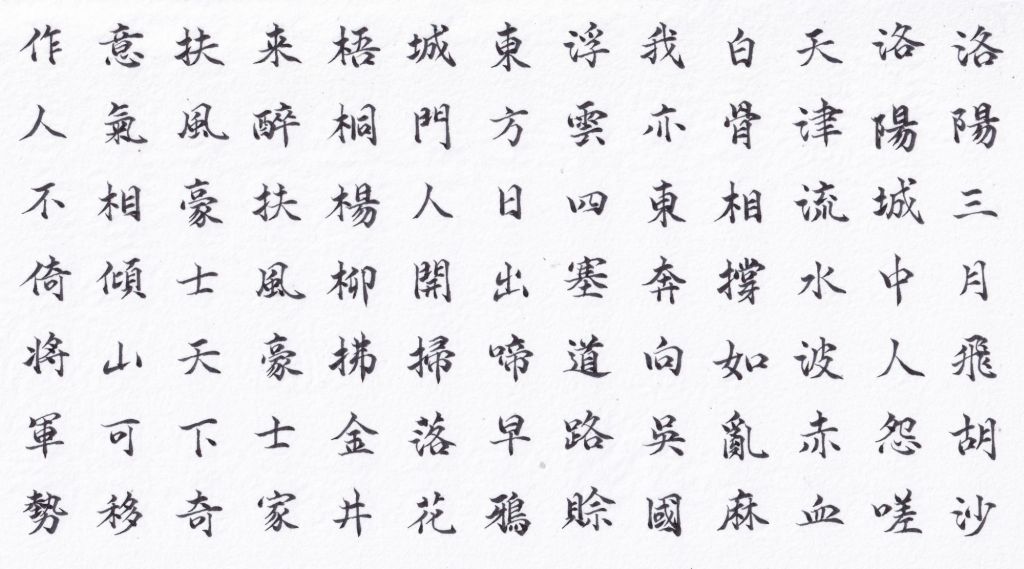 洛陽三月飛胡沙
洛陽城中人怨嗟
天津流水波赤血
白骨相撐如亂麻
我亦東奔向吳國
浮雲四塞道路賒
東方日出啼早鴉
城門人開掃落花
梧桐楊柳拂金井
來醉扶風豪士家
扶風豪士天下奇
意氣相傾山可移
作人不倚將軍勢